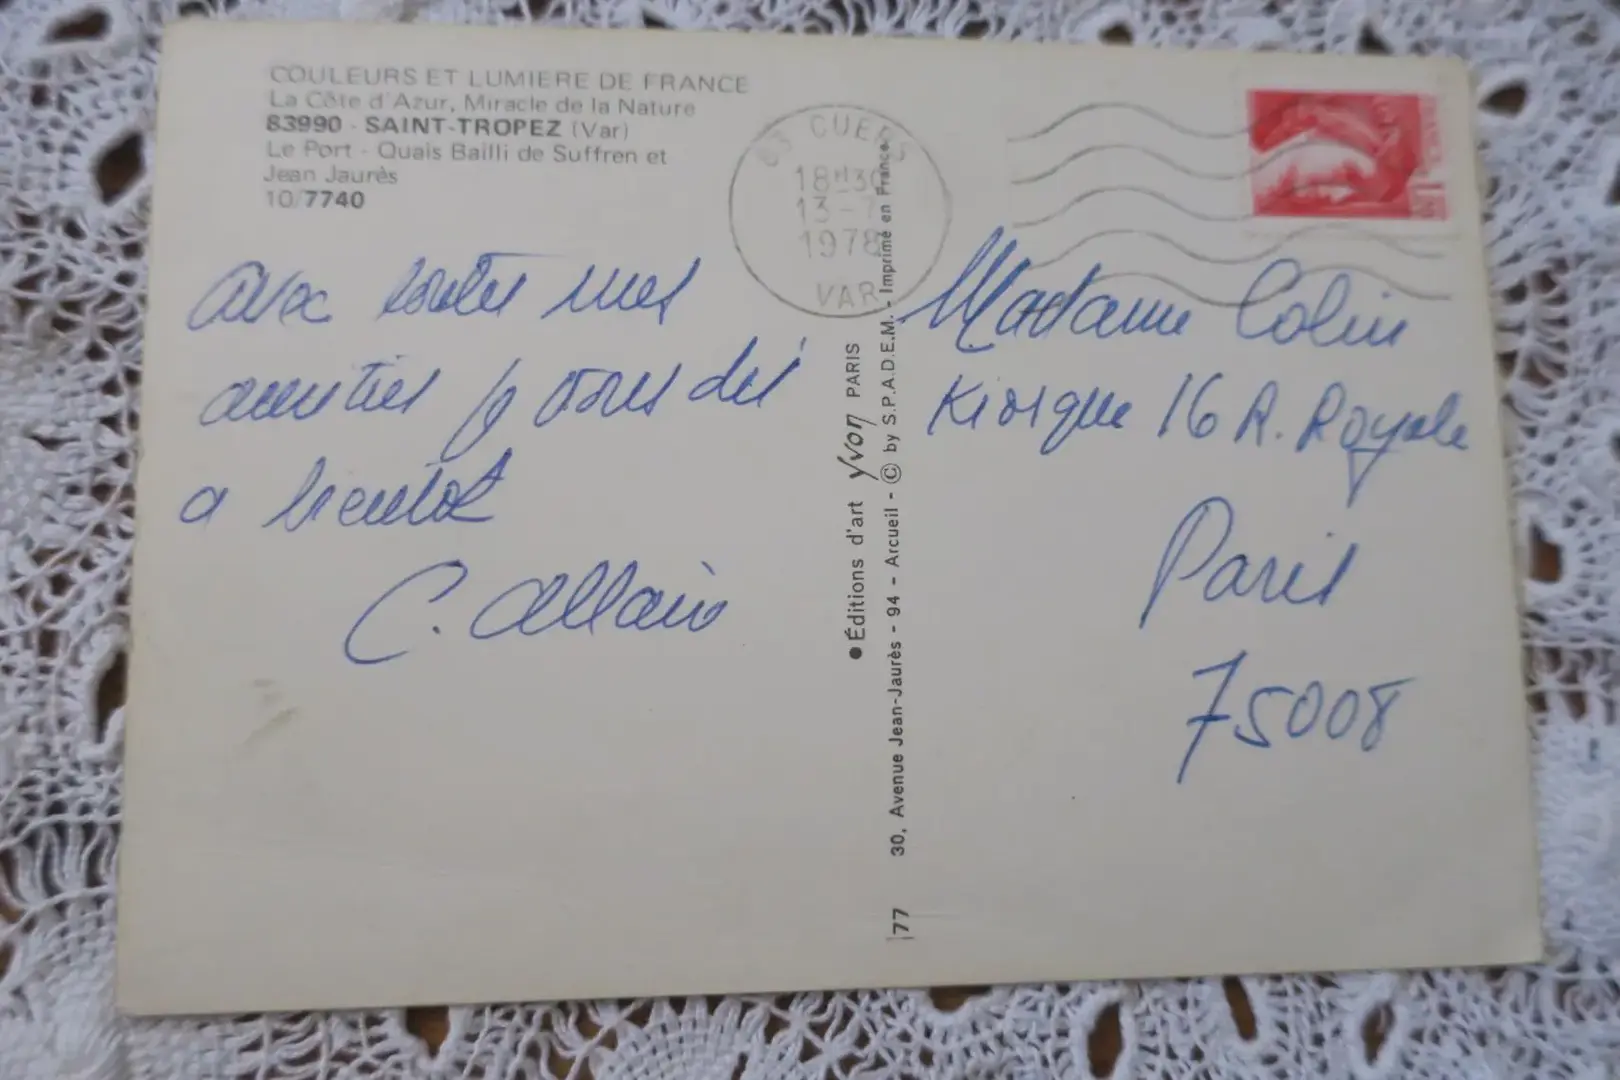 COULEURS ET LUMIERE DE FRANCE
La Côte d'Azur, Miracle de la Nature
83990 - SAINT-TROPEZ (Var)
Le Port - Quais Bailli de Suffren et
Jean Jaurès
10/7740
83 CUERS
18H30
13-7
1978
VAR
avec toutes mes
amitiés je vous dis
a bientot
C. Allain
● Éditions d'art yvon PARIS
30, Avenue Jean-Jaurès - 94 - Arcueil - © by S.P.A.D.E.M. - Imprimé en France
77
Madame Colin
Kiosque 16 R. Royale
Paris
75008